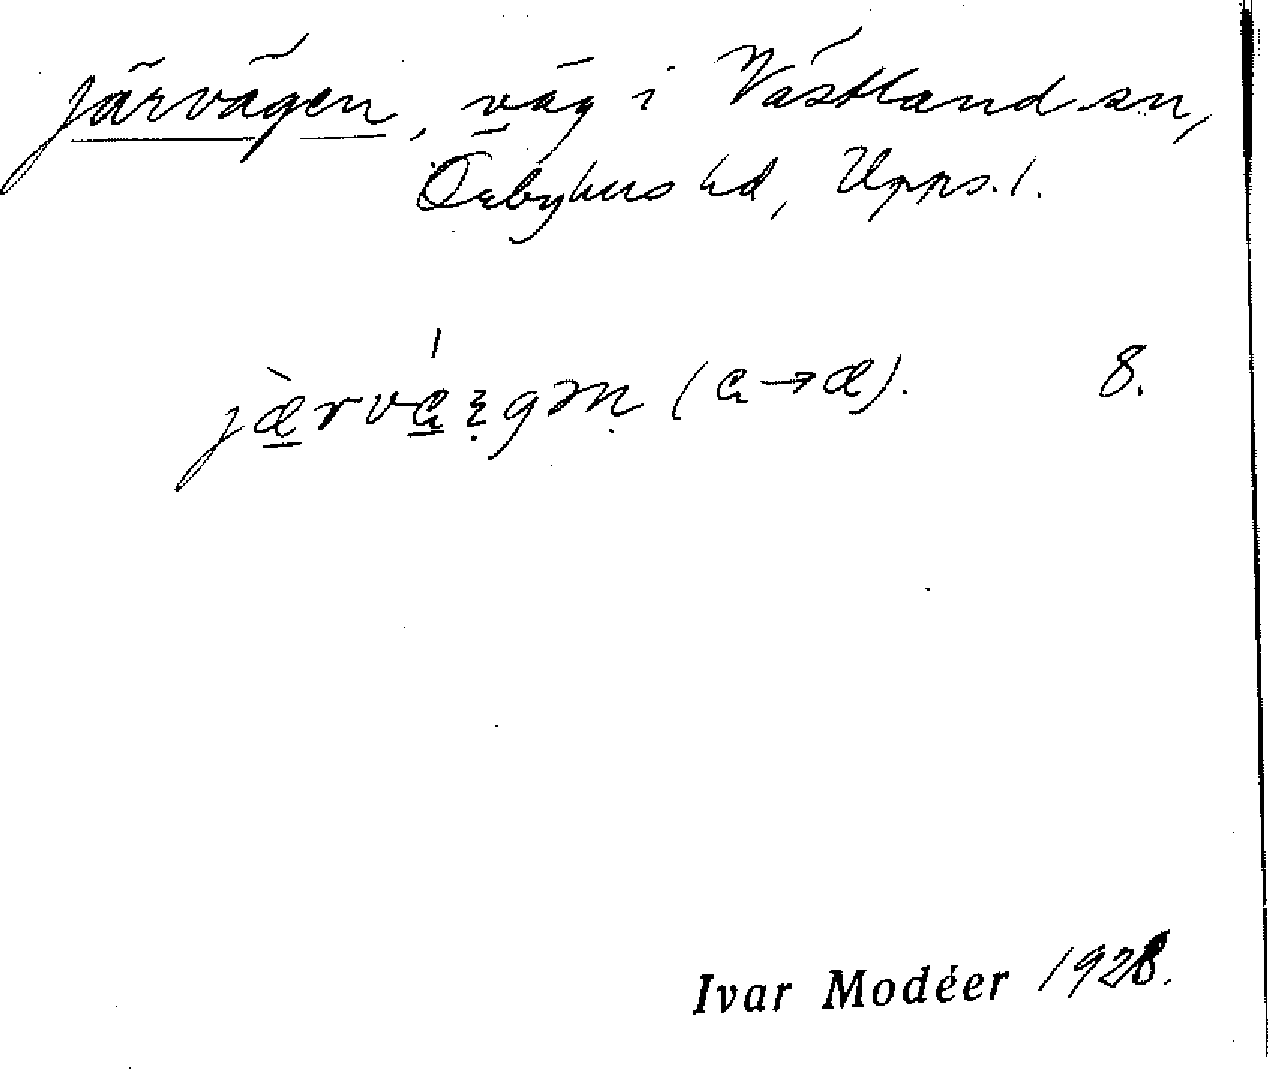 järvägen, väg i Västland sn,
Örbyhus hd, Upps. l.
8.
Ivar Modéer 1928.